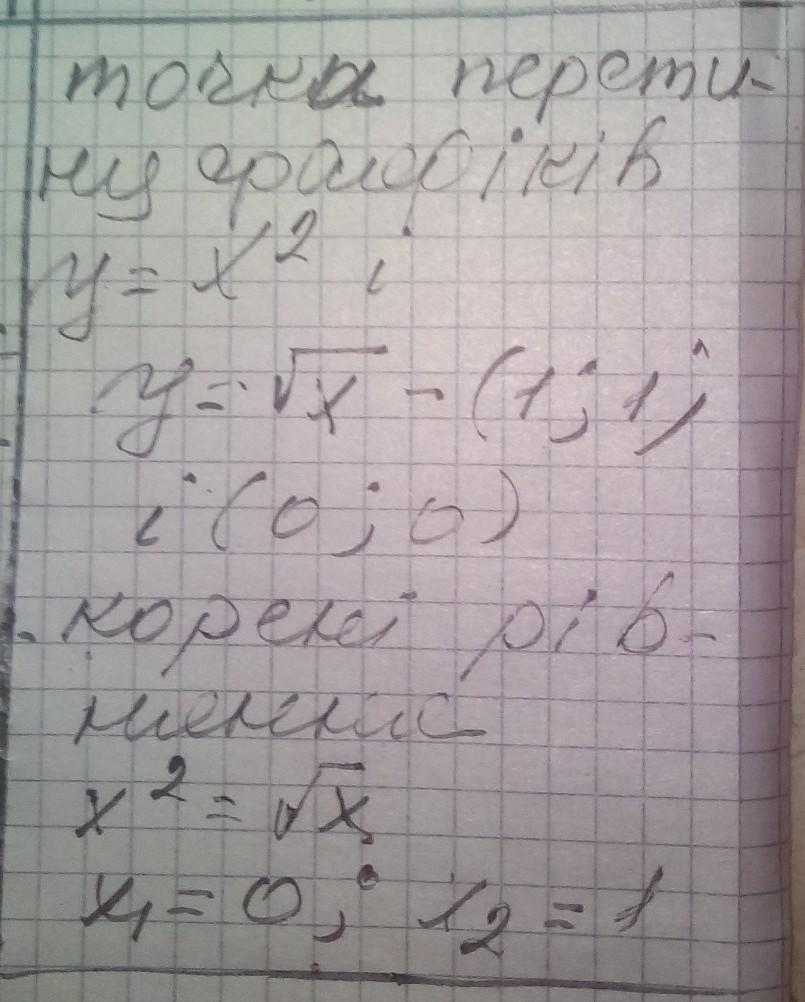 точка перети-
ну графіків
y = x² і
y = √x - (1; 1)
і (0; 0)
корені рів-
няння
x² = √x
x₁ = 0; x₂ = 1